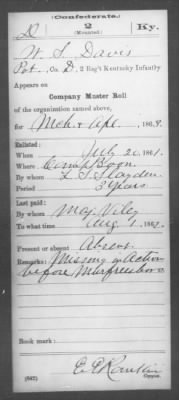 (Confederate.)
D 2 Ky.
(Mounted.)
W. S. Davis
Pvt., Co. D, 2 Reg't Kentucky Infantry
Appears on
Company Muster Roll
of the organization named above,
for Mch & Apl, 186
Enlisted:
When July 21, 1861.
Where Camp Boon.
By whom L. T. Slayden
Period 3 years
Last paid:
By whom Maj. Viley
To what time Aug 1, 186
Present or absent Absent.
Remarks: Missing in Action
before Murfreesboro
Book mark:
E. E. Rankin
(642) Copyist.